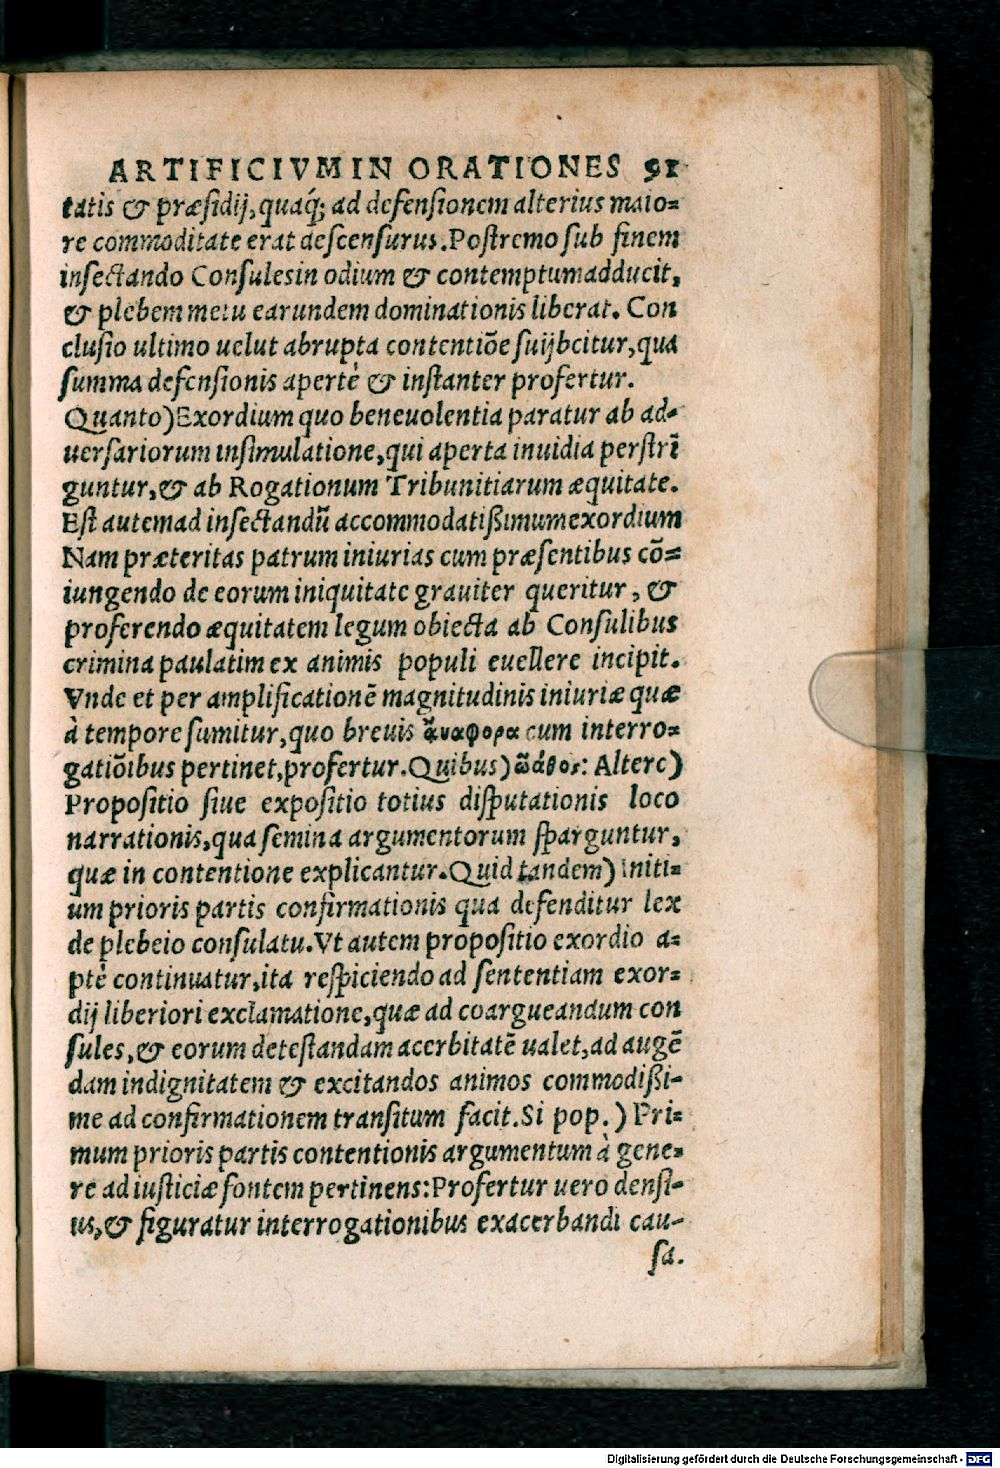 ARTIFICIVM IN ORATIONES 91
tatis & præsidij, quaq́; ad defensionem alterius maio=
re commoditate erat descensurus. Postremo sub finem
insectando Consules in odium & contemptum adducit,
& plebem metu earundem dominationis liberat. Con
clusio ultimo uelut abrupta contentiõe suijbcitur, qua
summa defensionis apertè & instanter profertur.
Quanto) Exordium quo beneuolentia paratur ab ad-
uersariorum insimulatione, qui aperta inuidia perstrĩ
guntur, & ab Rogationum Tribunitiarum æquitate.
Est autem ad insectandũ accommodatißimum exordium
Nam præteritas patrum iniurias cum præsentibus cõ=
iungendo de eorum iniquitate grauiter queritur, &
proferendo æquitatem legum obiecta ab Consulibus
crimina paulatim ex animis populi euellere incipit.
Vnde et per amplificationẽ magnitudinis iniuriæ quæ
à tempore sumitur, quo breuis ἀναφορα cum interro=
gatiõibus pertinet, profertur. Quibus) : Altere)
Propositio siue expositio totius disputationis loco
narrationis, qua semina argumentorum sparguntur,
quæ in contentione explicantur. Quid tandem) Initi=
um prioris partis confirmationis qua defenditur lex
de plebeio consulatu. Vt autem propositio exordio a=
ptè continuatur, ita respiciendo ad sententiam exor=
dij liberiori exclamatione, quæ ad coargueandum con
sules, & eorum detestandam acerbitatẽ ualet, ad augẽ
dam indignitatem & excitandos animos commodißi-
me ad confirmationem transitum facit. Si pop.) Pri=
mum prioris partis contentionis argumentum à gene=
re ad iusticiæ fontem pertinens: Profertur uero densi-
us, & figuratur interrogationibus exacerbandi cau-
sa.
Digitalisierung gefördert durch die Deutsche Forschungsgemeinschaft - DFG